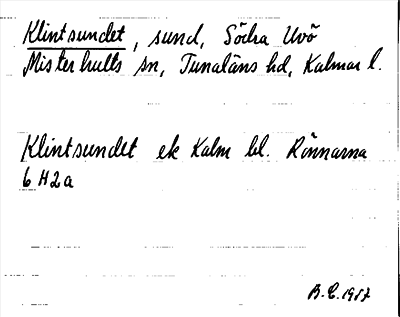 Klintsundet, sund, Södra Uvö
Misterhults sn, Tunaläns hd, Kalmar l.
Klintsundet ek Kalm bl. Rönnarna
6 H 2 a
B.E. 1957